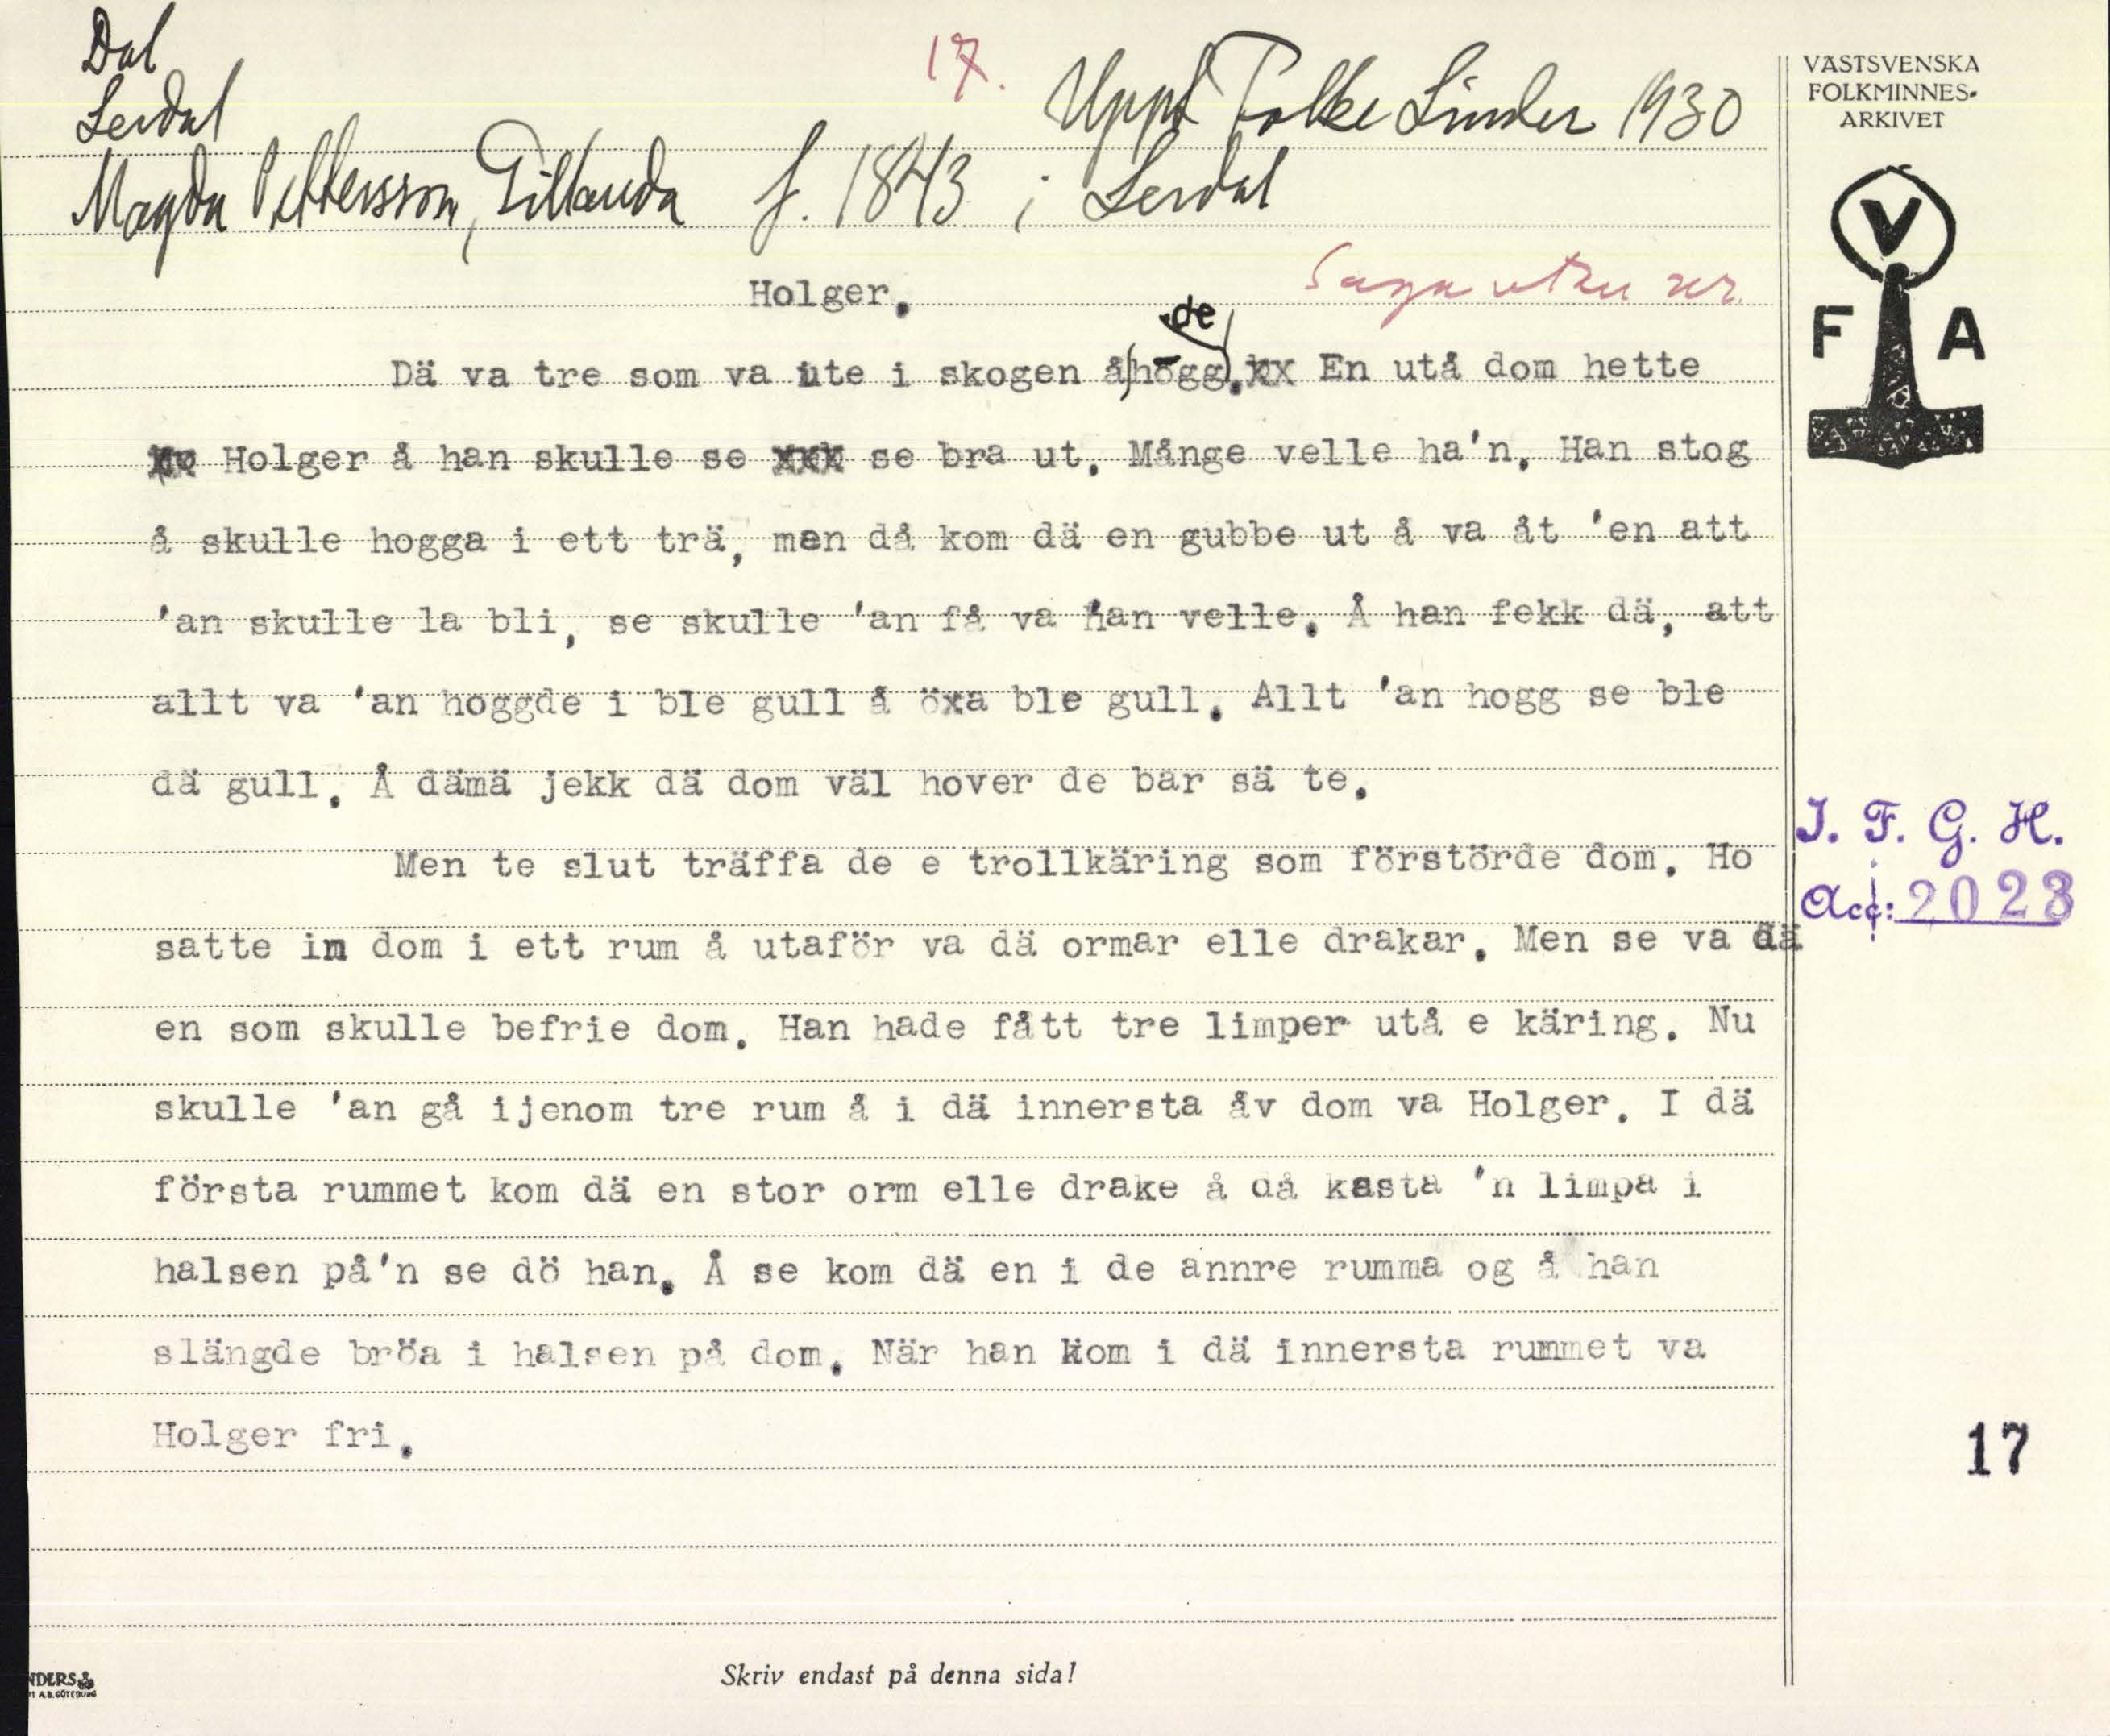 Dal
Lerdal
17.
Uppt Folke Linder 1930
Magda Pettersson, f. 1843 i Lerdal
Holger.
Saga
de
Dä va tre som va ute i skogen å högg. xx En utå dom hette
Holger å han skulle se xxx se bra ut. Månge velle ha'n. Han stog
å skulle hogga i ett trä, men då kom dä en gubbe ut å va åt 'en att
'an skulle la bli, se skulle 'an få va han velle. Å han fekk dä, att
allt va 'an hoggde i ble gull å öxa ble gull. Allt 'an hogg se ble
dä gull. Å dämä jekk dä dom väl hover de bar sä te.
Men te slut träffa de e trollkäring som förstörde dom. Ho
satte in dom i ett rum å utaför va dä ormar elle drakar. Men se va dä
en som skulle befrie dom. Han hade fått tre limper utå e käring. Nu
skulle 'an gå ijenom tre rum å i dä innersta åv dom va Holger. I dä
första rummet kom dä en stor orm elle drake å då kasta 'n limpa i
halsen på'n se dö han. Å se kom dä en i de annre rumma og å han
slängde bröa i halsen på dom. När han kom i dä innersta rummet va
Holger fri.
Skriv endast på denna sida!
VÄSTSVENSKA
FOLKMINNES-
ARKIVET
V
F A
I. F. G. H.
Acc: 2023
17